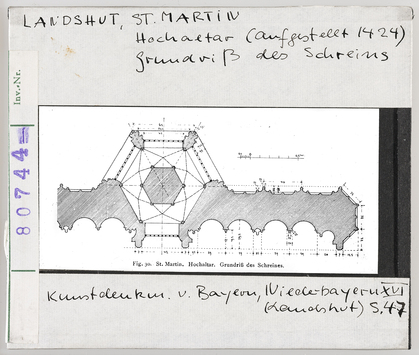 LANDSHUT, ST. MARTIN
Hochaltar (aufgestellt 1424)
Grundriß des Schreins
Inv.-Nr.
80744
Fig. 30. St. Martin. Hochaltar. Grundriß des Schreines.
Kunstdenkm. v. Bayern, Niederbayern XVI
(Landshut) S. 47